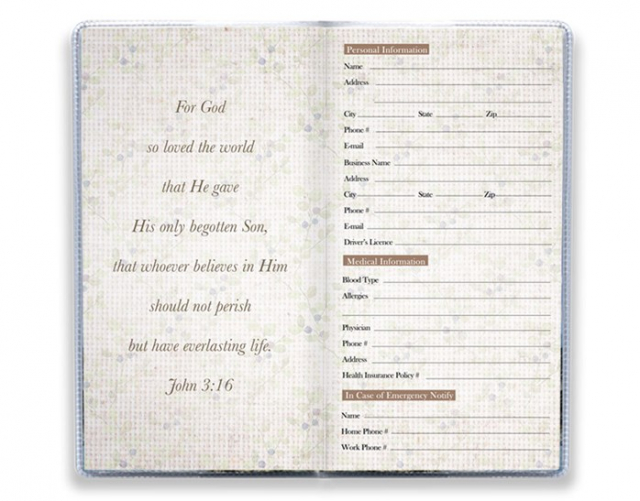 For God
so loved the world
that He gave
His only begotten Son,
that whoever believes in Him
should not perish
but have everlasting life.
John 3:16
Personal Information
Name
Address
City State Zip
Phone #
E-mail
Business Name
Address
City State Zip
Phone #
E-mail
Driver's Licence
Medical Information
Blood Type
Allergies
Physician
Phone #
Address
Health Insurance Policy #
In Case of Emergency Notify
Name
Home Phone #
Work Phone #